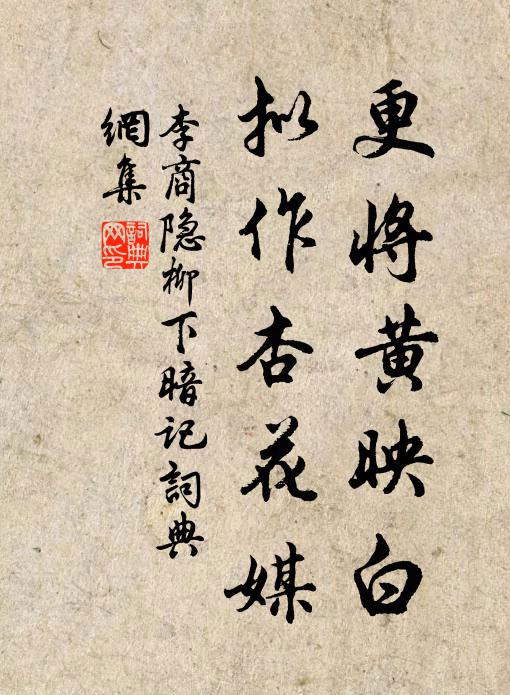 更将黄映白
拟作杏花媒
李商隐柳下暗记詞典
網集
詞典
网印